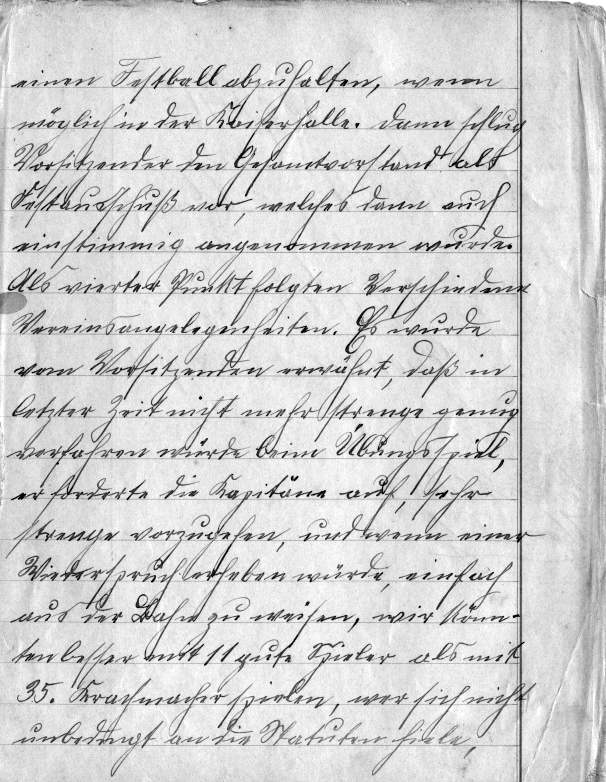 einen Festball abzuhalten, wenn
möglich in der Kaiserhalle. Dann schlug
Vorsitzender den Gesamtvorstand als
Festausschuß vor, welches dann auch
einstimmig angenommen wurde.
Als vierter Punkt folgten Verschiedene
Vereinsangelegenheiten. Es wurde
vom Vorsitzenden erwähnt, daß in
letzter Zeit nicht mehr strenge genug
verfahren würde beim Übungsspiel,
er forderte die Kapitäne auf, sehr
strenge vorzugehen, und wenn einer
Wiederspruch erheben würde, einfach
aus der Bahn zu weisen, wir könn-
ten besser mit 11 gute Spieler als mit
35. Krachmacher spielen, wer sich nicht
unbedingt an die Statuten hiele,